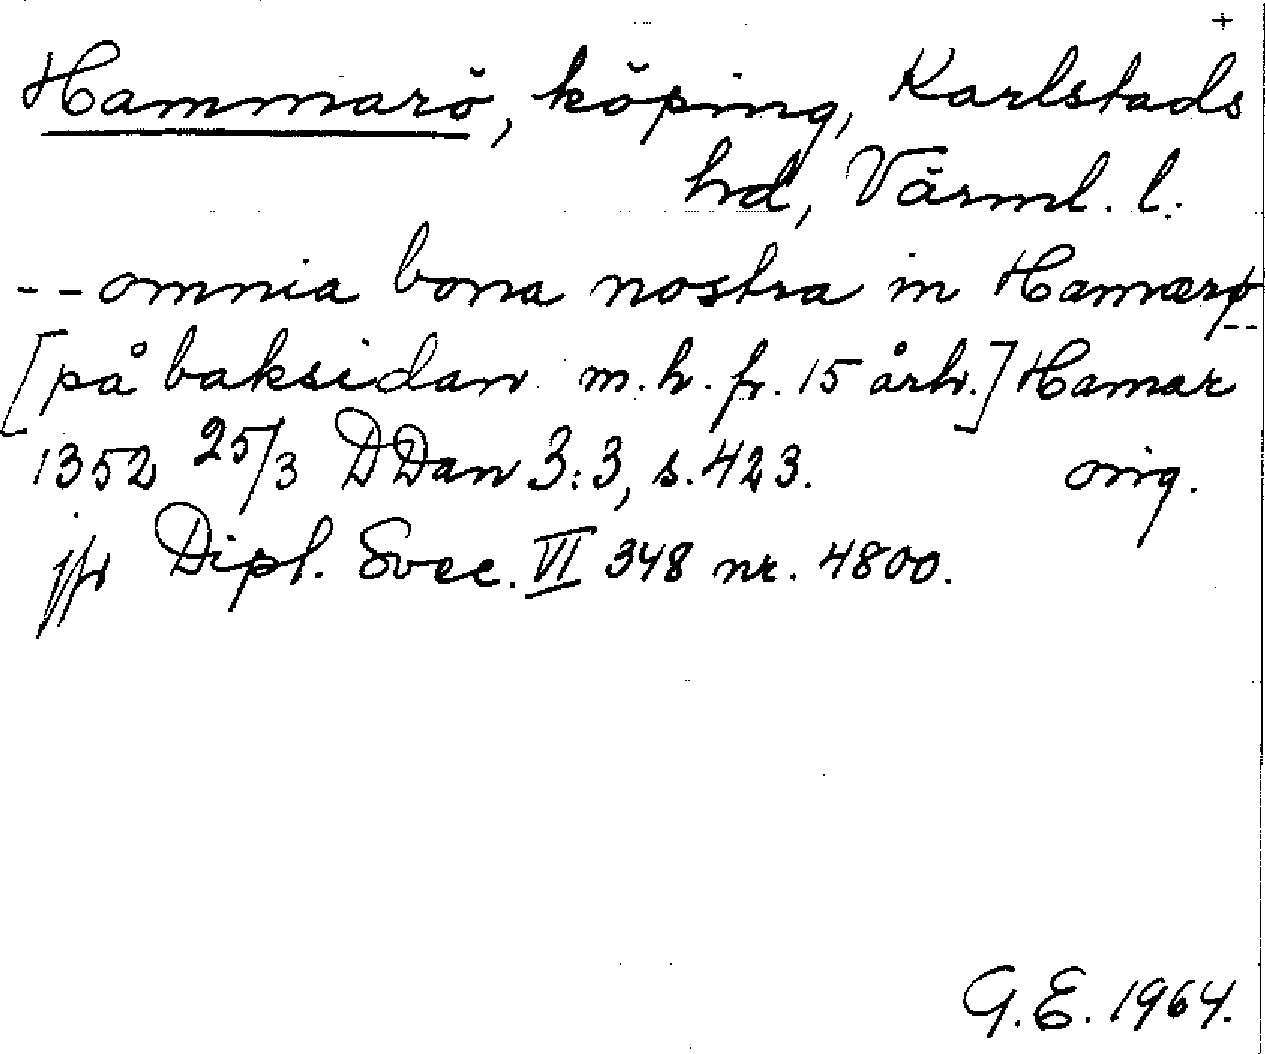 +
Hammarö, köping, Karlstads
hd, Värml. l.
-- omnia bona nostra in Hamærø --
[på baksidan m. h. fr. 15 årh.] Hamar
1352 25/3 DDan 3:3, s. 423. orig.
jfr Dipl. Svec. VI 348 nr. 4800.
G.E. 1964.